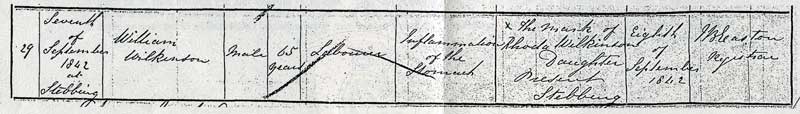 29
Seventh
of
September
1842
at
Stebbing
William
Wilkinson
Male
65
years
Labourer
Inflammation
of the
Stomach
X The mark of
Rhoda Wilkinson
Daughter
Present
Stebbing
Eighth
of
September
1842
Registrar